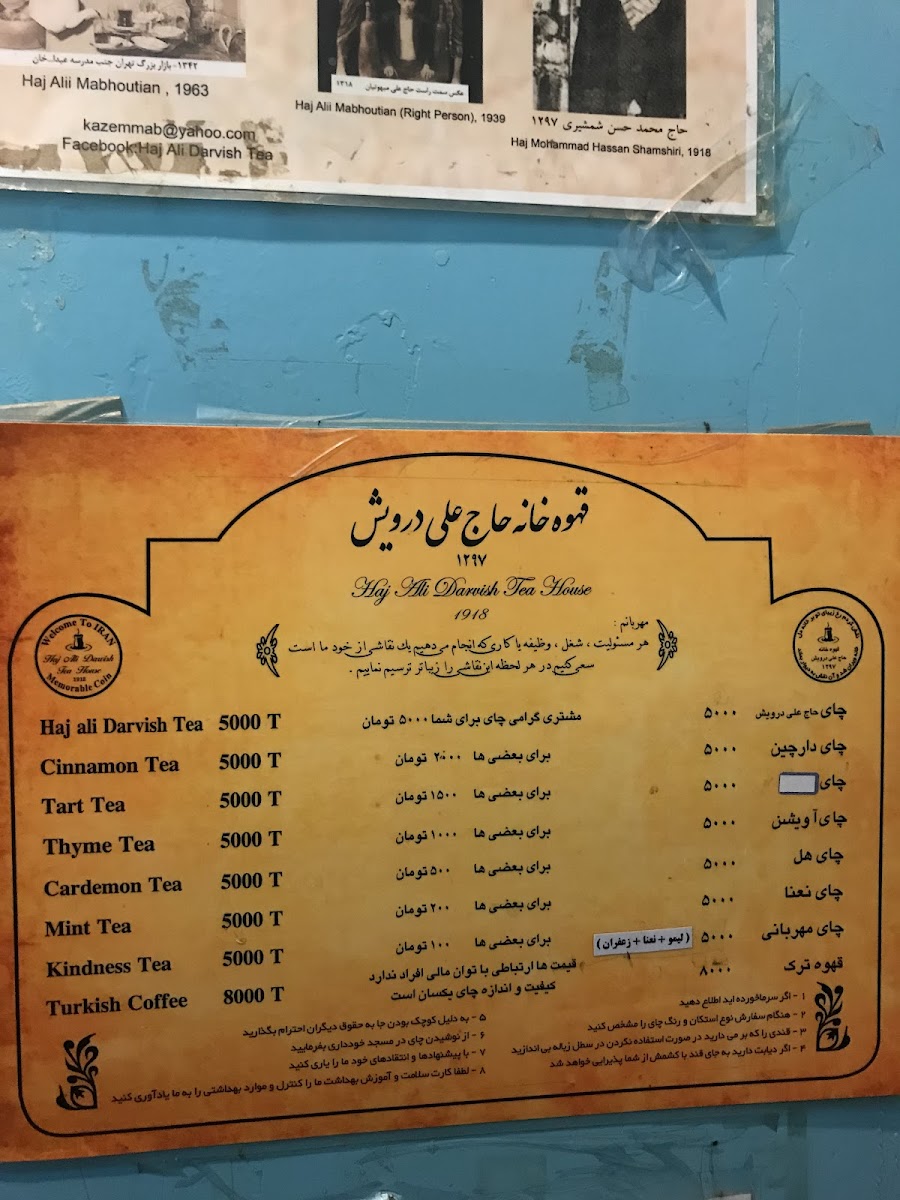 ۱۳۴۲- بازار بزرگ تهران جنب مدرسه عبدا..خان
Haj Alii Mabhoutian , 1963
kazemmab@yahoo.com
Facebook:Haj Ali Darvish Tea
عکس سمت راست حاج علی مبهوتیان ۱۳۱۸
Haj Alii Mabhoutian (Right Person), 1939
حاج محمد حسن شمشیری ۱۲۹۷
Haj Mohammad Hassan Shamshiri, 1918
قهوه خانه حاج علی درویش
۱۲۹۷
Haj Ali Darvish Tea House
1918
Welcome To IRAN
Haj Ali Darvish
Tea House
1918
Memorable Coin
قهوه خانه
حاج علی درویش
۱۲۹۷
مهربانم :
هر مسئولیت ، شغل ، وظیفه یا کاری که انجام می‌دهیم یک نقاشی از خود ما است
سعی کنیم در هر لحظه این نقاشی را زیباتر ترسیم نماییم .
چای حاج علی درویش ۵۰۰۰
چای دارچین ۵۰۰۰
چای ۵۰۰۰
چای آویشن ۵۰۰۰
چای هل ۵۰۰۰
چای نعنا ۵۰۰۰
چای مهربانی ۵۰۰۰ ( لیمو + نعنا + زعفران )
قهوه ترک ۸۰۰۰
مشتری گرامی چای برای شما ۵۰۰۰ تومان
برای بعضی ها ۲۰۰۰ تومان
برای بعضی ها ۱۵۰۰ تومان
برای بعضی ها ۱۰۰۰ تومان
برای بعضی ها ۵۰۰ تومان
برای بعضی ها ۲۰۰ تومان
برای بعضی ها ۱۰۰ تومان
قیمت ها ارتباطی با توان مالی افراد ندارد
کیفیت و اندازه چای یکسان است
Haj ali Darvish Tea 5000 T
Cinnamon Tea 5000 T
Tart Tea 5000 T
Thyme Tea 5000 T
Cardemon Tea 5000 T
Mint Tea 5000 T
Kindness Tea 5000 T
Turkish Coffee 8000 T
۱ - اگر سرماخورده اید اطلاع دهید
۲ - هنگام سفارش نوع استکان و رنگ چای را مشخص کنید
۳ - قندی را که بر می دارید در صورت استفاده نکردن در سطل زباله بی اندازید
۴ - اگر دیابت دارید به جای قند با کشمش از شما پذیرایی خواهد شد
۵ - به دلیل کوچک بودن جا به حقوق دیگران احترام بگذارید
۶ - از نوشیدن چای در مسجد خودداری بفرمایید
۷ - با پیشنهادها و انتقادهای خود ما را یاری کنید
۸ - لطفا کارت سلامت و آموزش بهداشت ما را کنترل و موارد بهداشتی را به ما یادآوری کنید